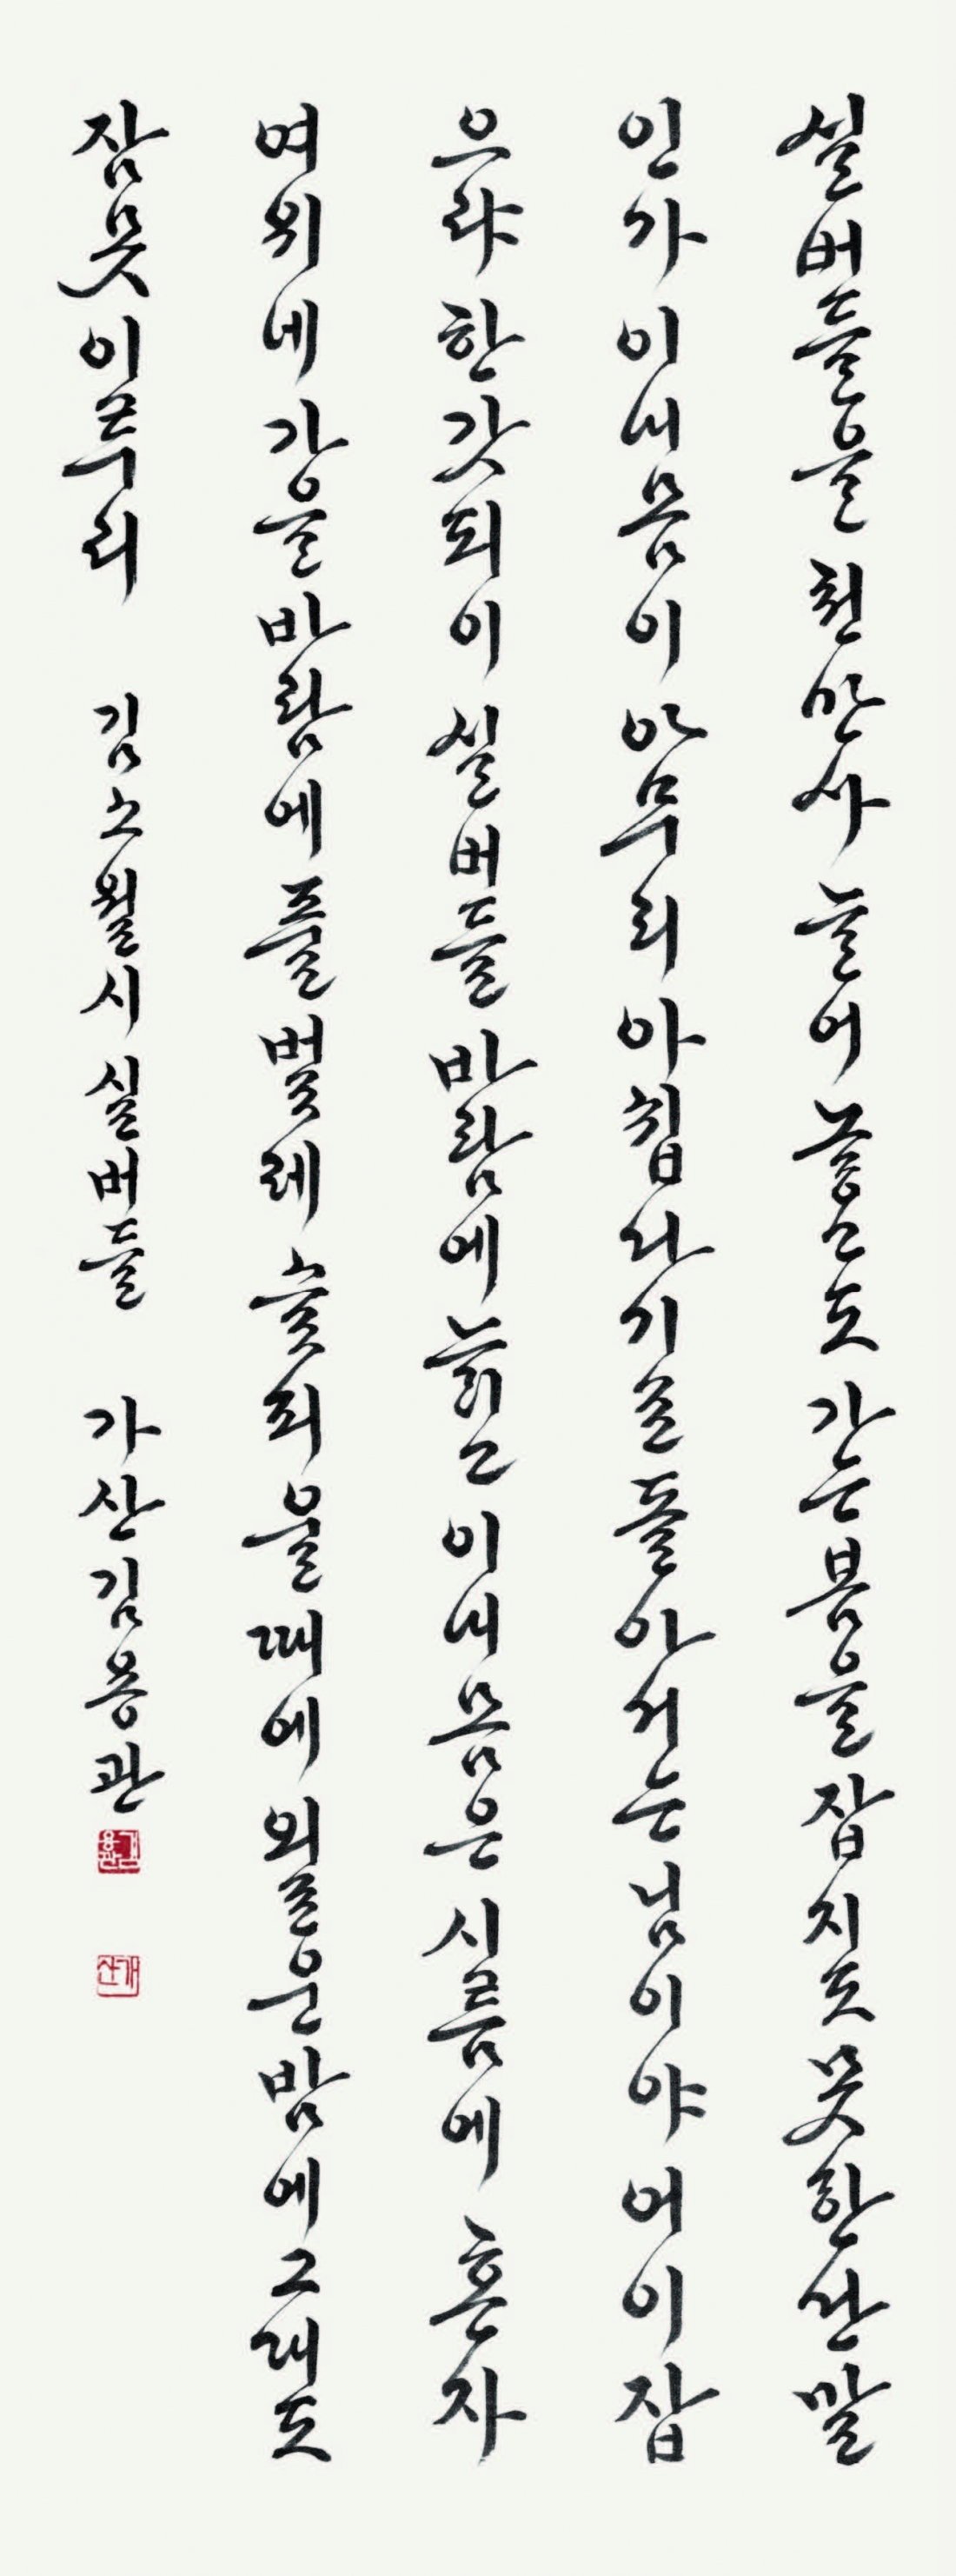 실버들을 천만사 늘어 놓고도 가는봄을 잡지도 못한단말
인가 이내몸이 아무리 아쉽다기로 돌아서는 님이야 어이 잡
으랴 한갓되이 실버들 바람에 늙고 이내몸은 시름에 혼자
여위네 가을바람에 풀벌레 슬피 울때에 외로운밤에 그대도
잠못이루리 김소월시 실버들 가산김용관
김용관
가산